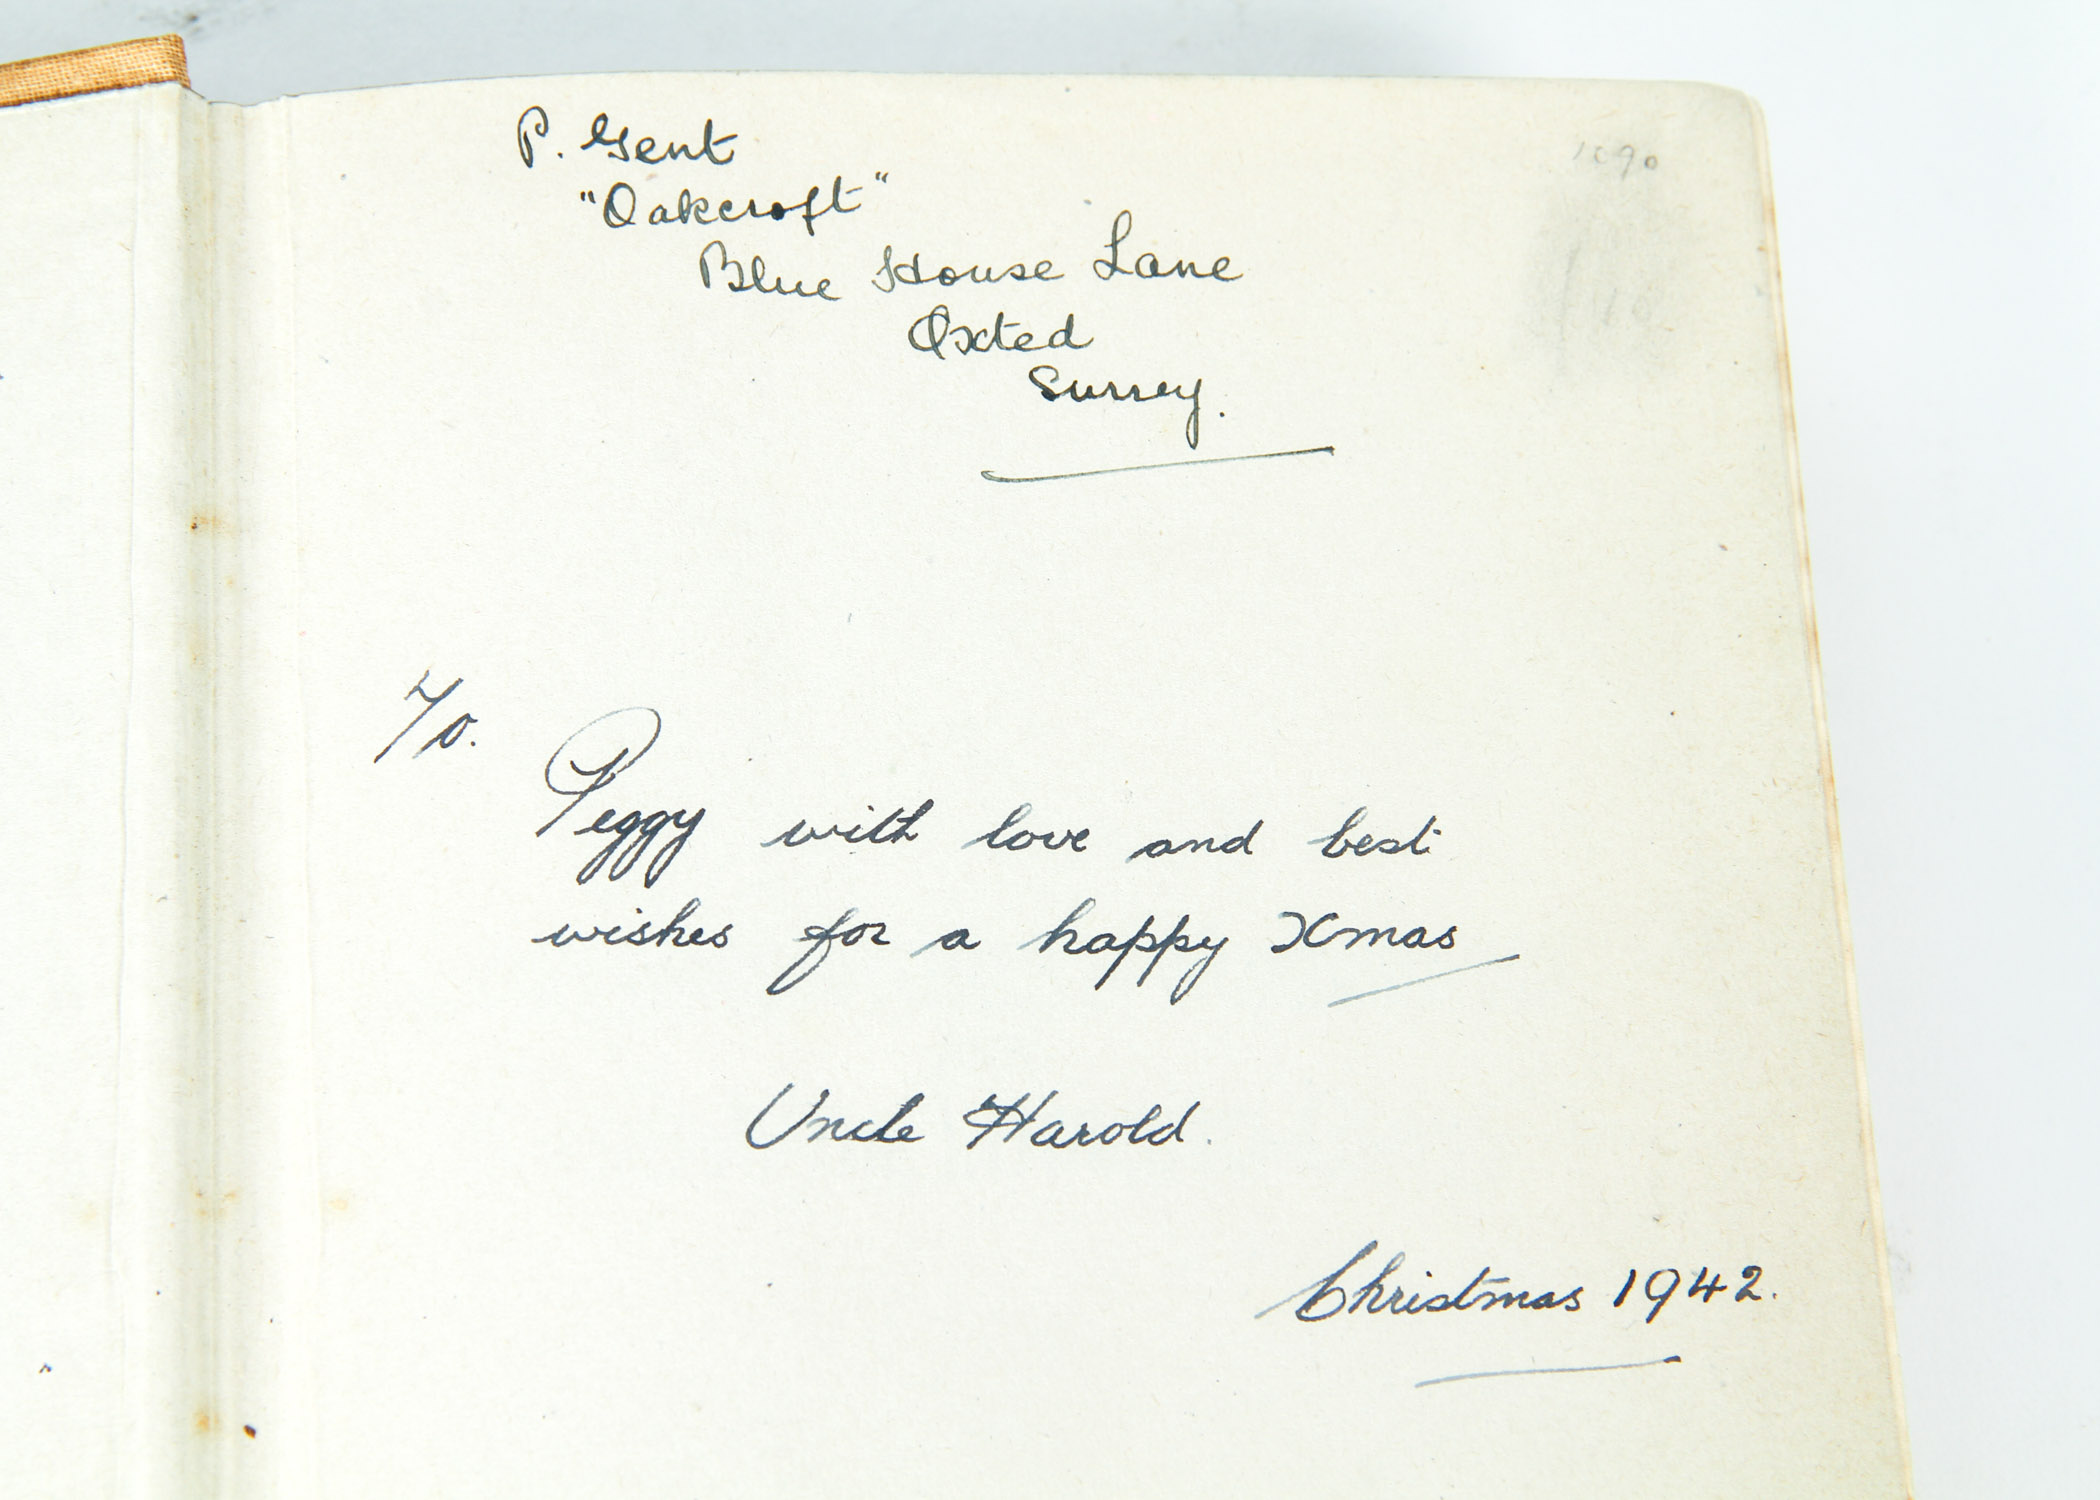 P. Gent
"Oakcroft"
Blue House Lane
Oxted
Surrey.
To.
Peggy with love and best
wishes for a happy Xmas
Uncle Harold.
Christmas 1942.